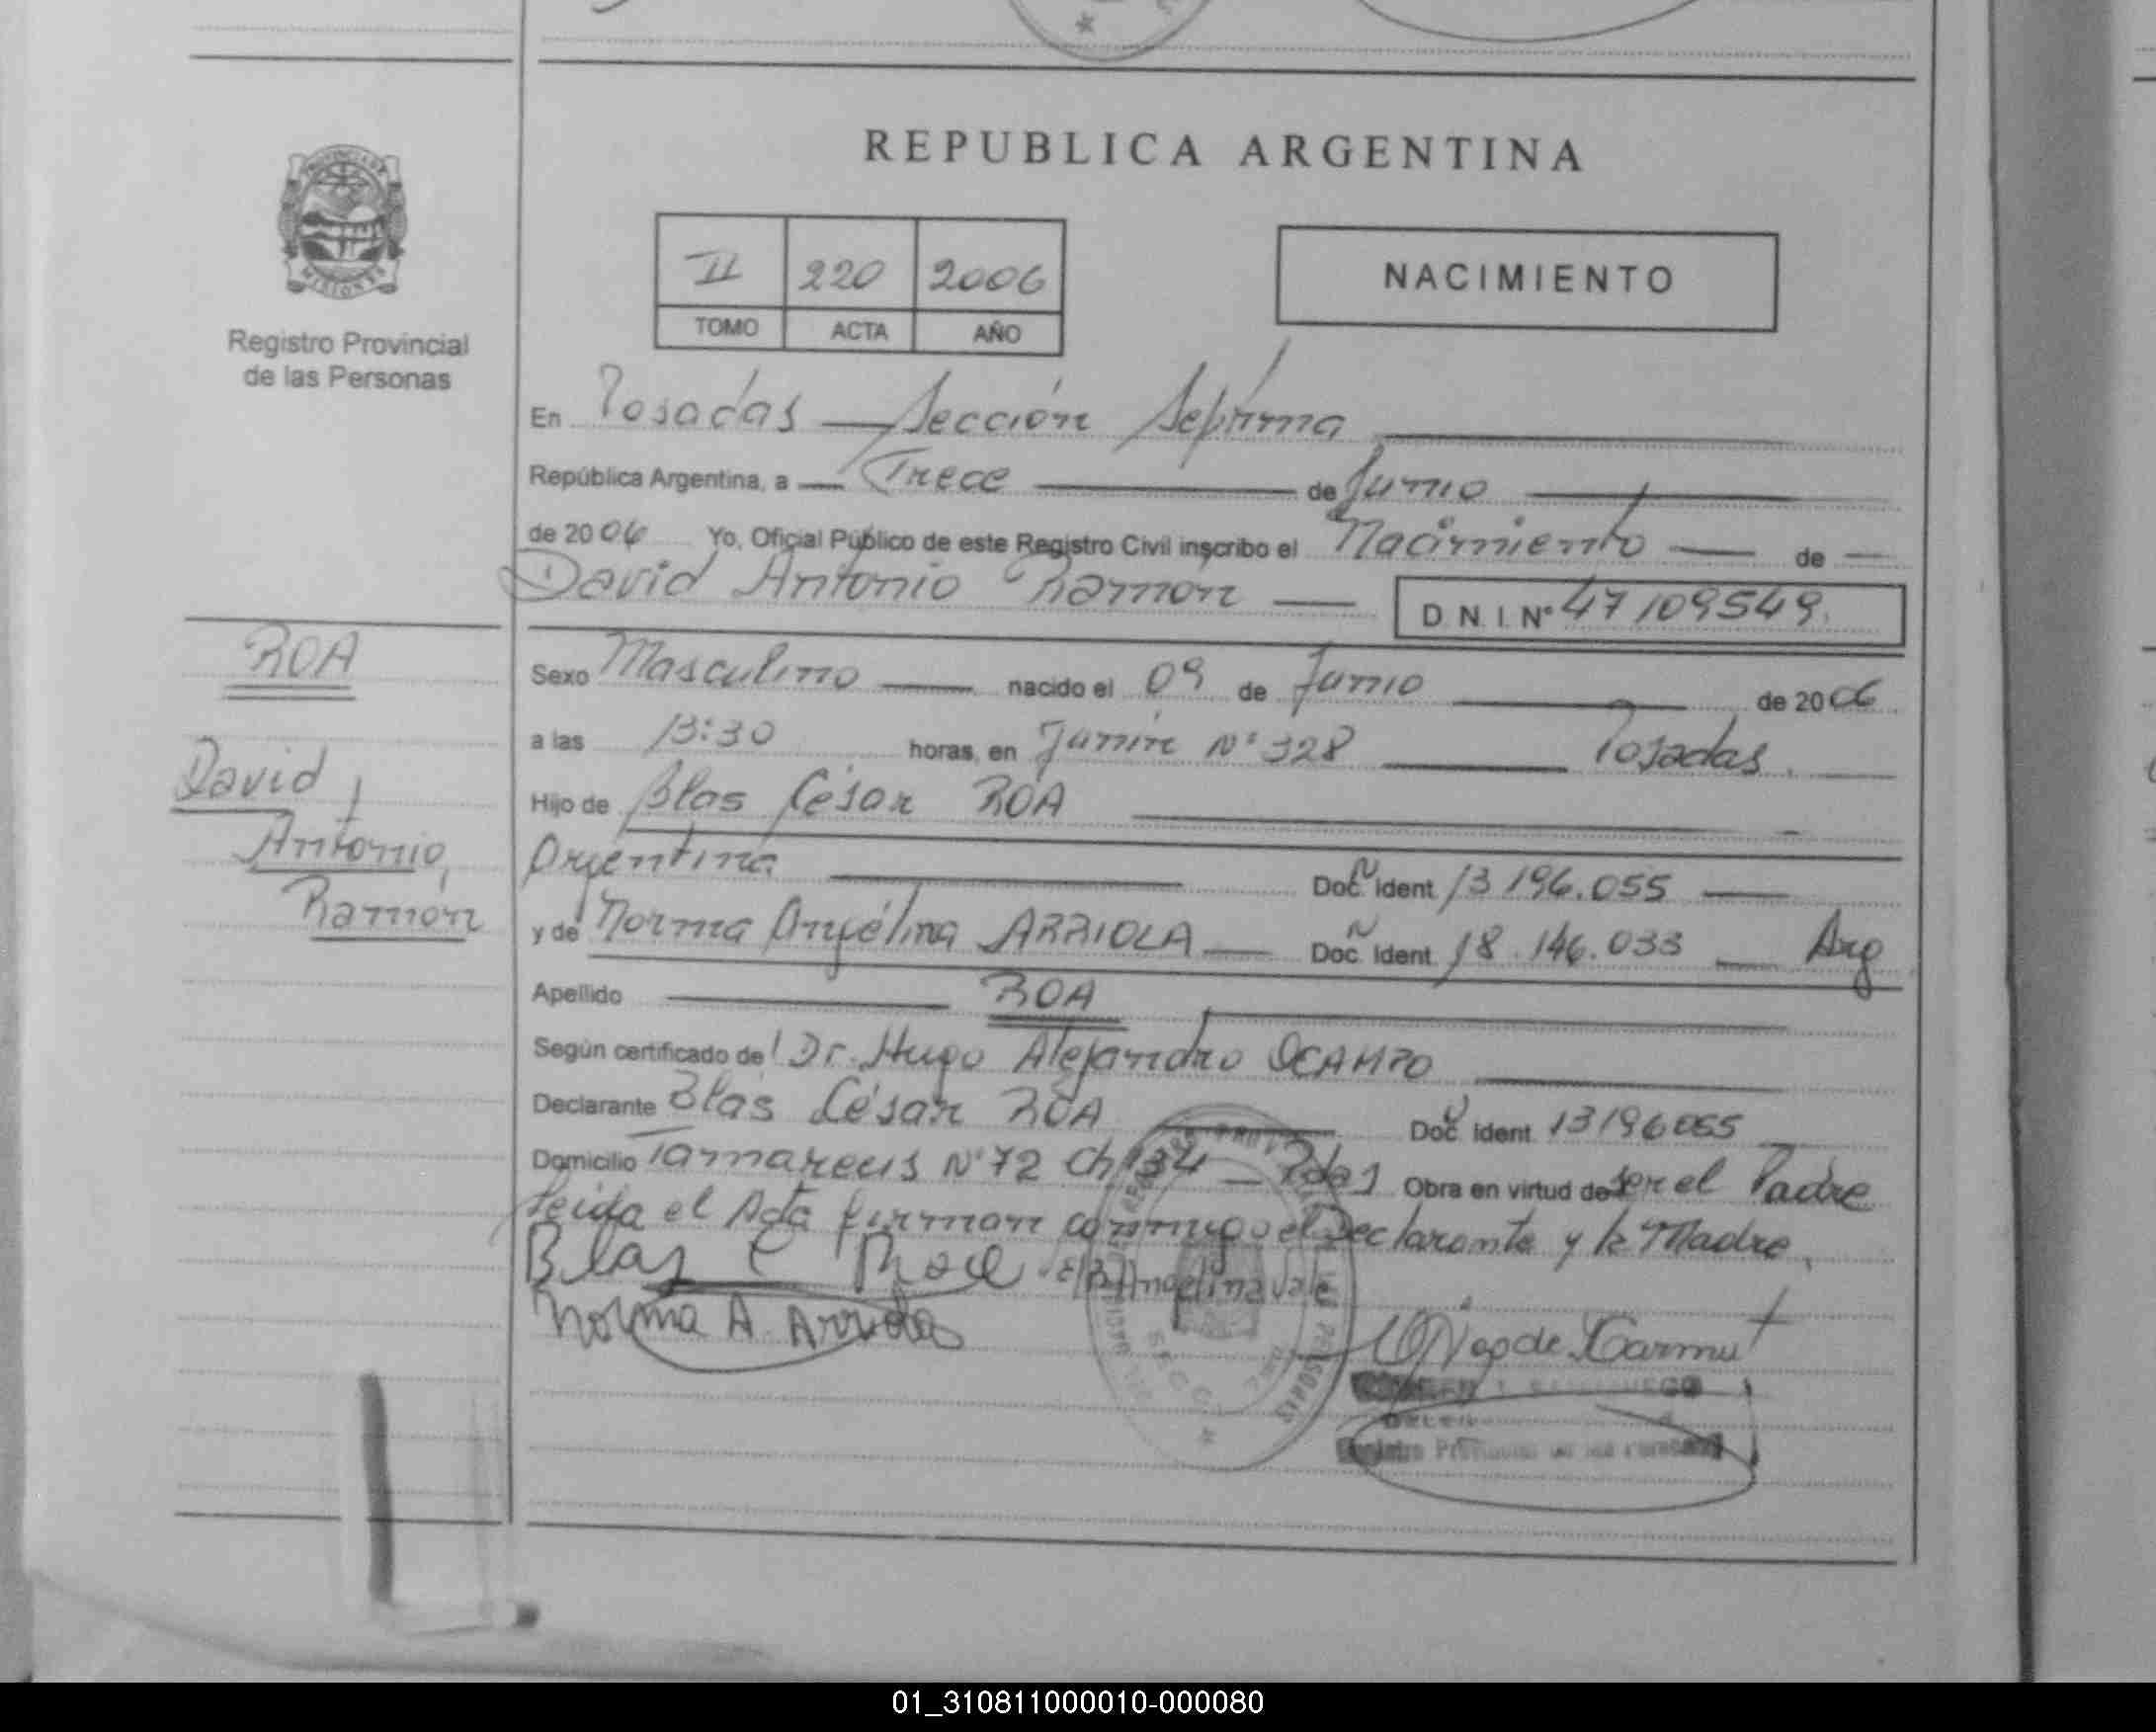 REPUBLICA ARGENTINA
PROVINCIA DE
MISIONES
Registro Provincial
de las Personas
II 220 2006
TOMO ACTA AÑO
NACIMIENTO
En Posadas — Sección Séptima
República Argentina, a — Trece — de Junio
de 2006 Yo, Oficial Público de este Registro Civil inscribo el Nacimiento — de —
David Antonio Ramon — D.N.I. Nº 47109549.
ROA
David,
Antonio,
Ramón
Sexo Masculino — nacido el 09 de Junio — de 2006
a las 13:30 horas, en Junín Nº 328 — Posadas. —
Hijo de Blas César ROA —
Argentina. — Doc. Ident. 13196.055 —
y de Norma Angélina ARRIOLA — Doc. Ident. 18.146.033 — Arg
Apellido — ROA —
Según certificado de: Dr. Hugo Alejandro OCAMPO —
Declarante Blas César ROA — Doc. Ident. 13196055 —
Domicilio Nº 72 Ch 134 — Pdas Obra en virtud de ser el Padre
Leida el Acta firman conmigo el Declarante y la Madre,
Blas C Roa Angelina vale
Norma A. Arriola
Registro Provincial de las Personas
01_310811000010-000080